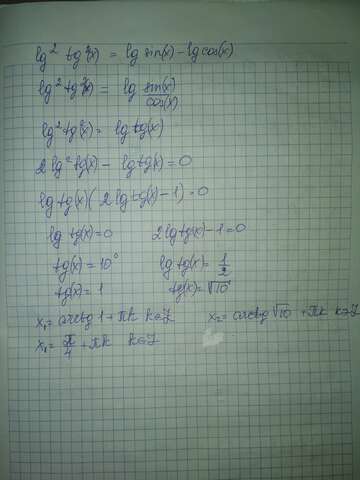 lg² tg²(x) = lg sin(x) - lg cos(x)
lg² tg²(x) = lg sin(x)/cos(x)
lg² tg²(x) = lg tg(x)
2lg² tg(x) - lg tg(x) = 0
lg tg(x)(2lg tg(x) - 1) = 0
lg tg(x) = 0 2lg tg(x) - 1 = 0
tg(x) = 10⁰ lg tg(x) = 1/2
tg(x) = 1 tg(x) = √10
x₁ = arctg 1 + πk k∈Z x₂ = arctg √10 + πk k∈Z
x₁ = π/4 + πk k∈Z